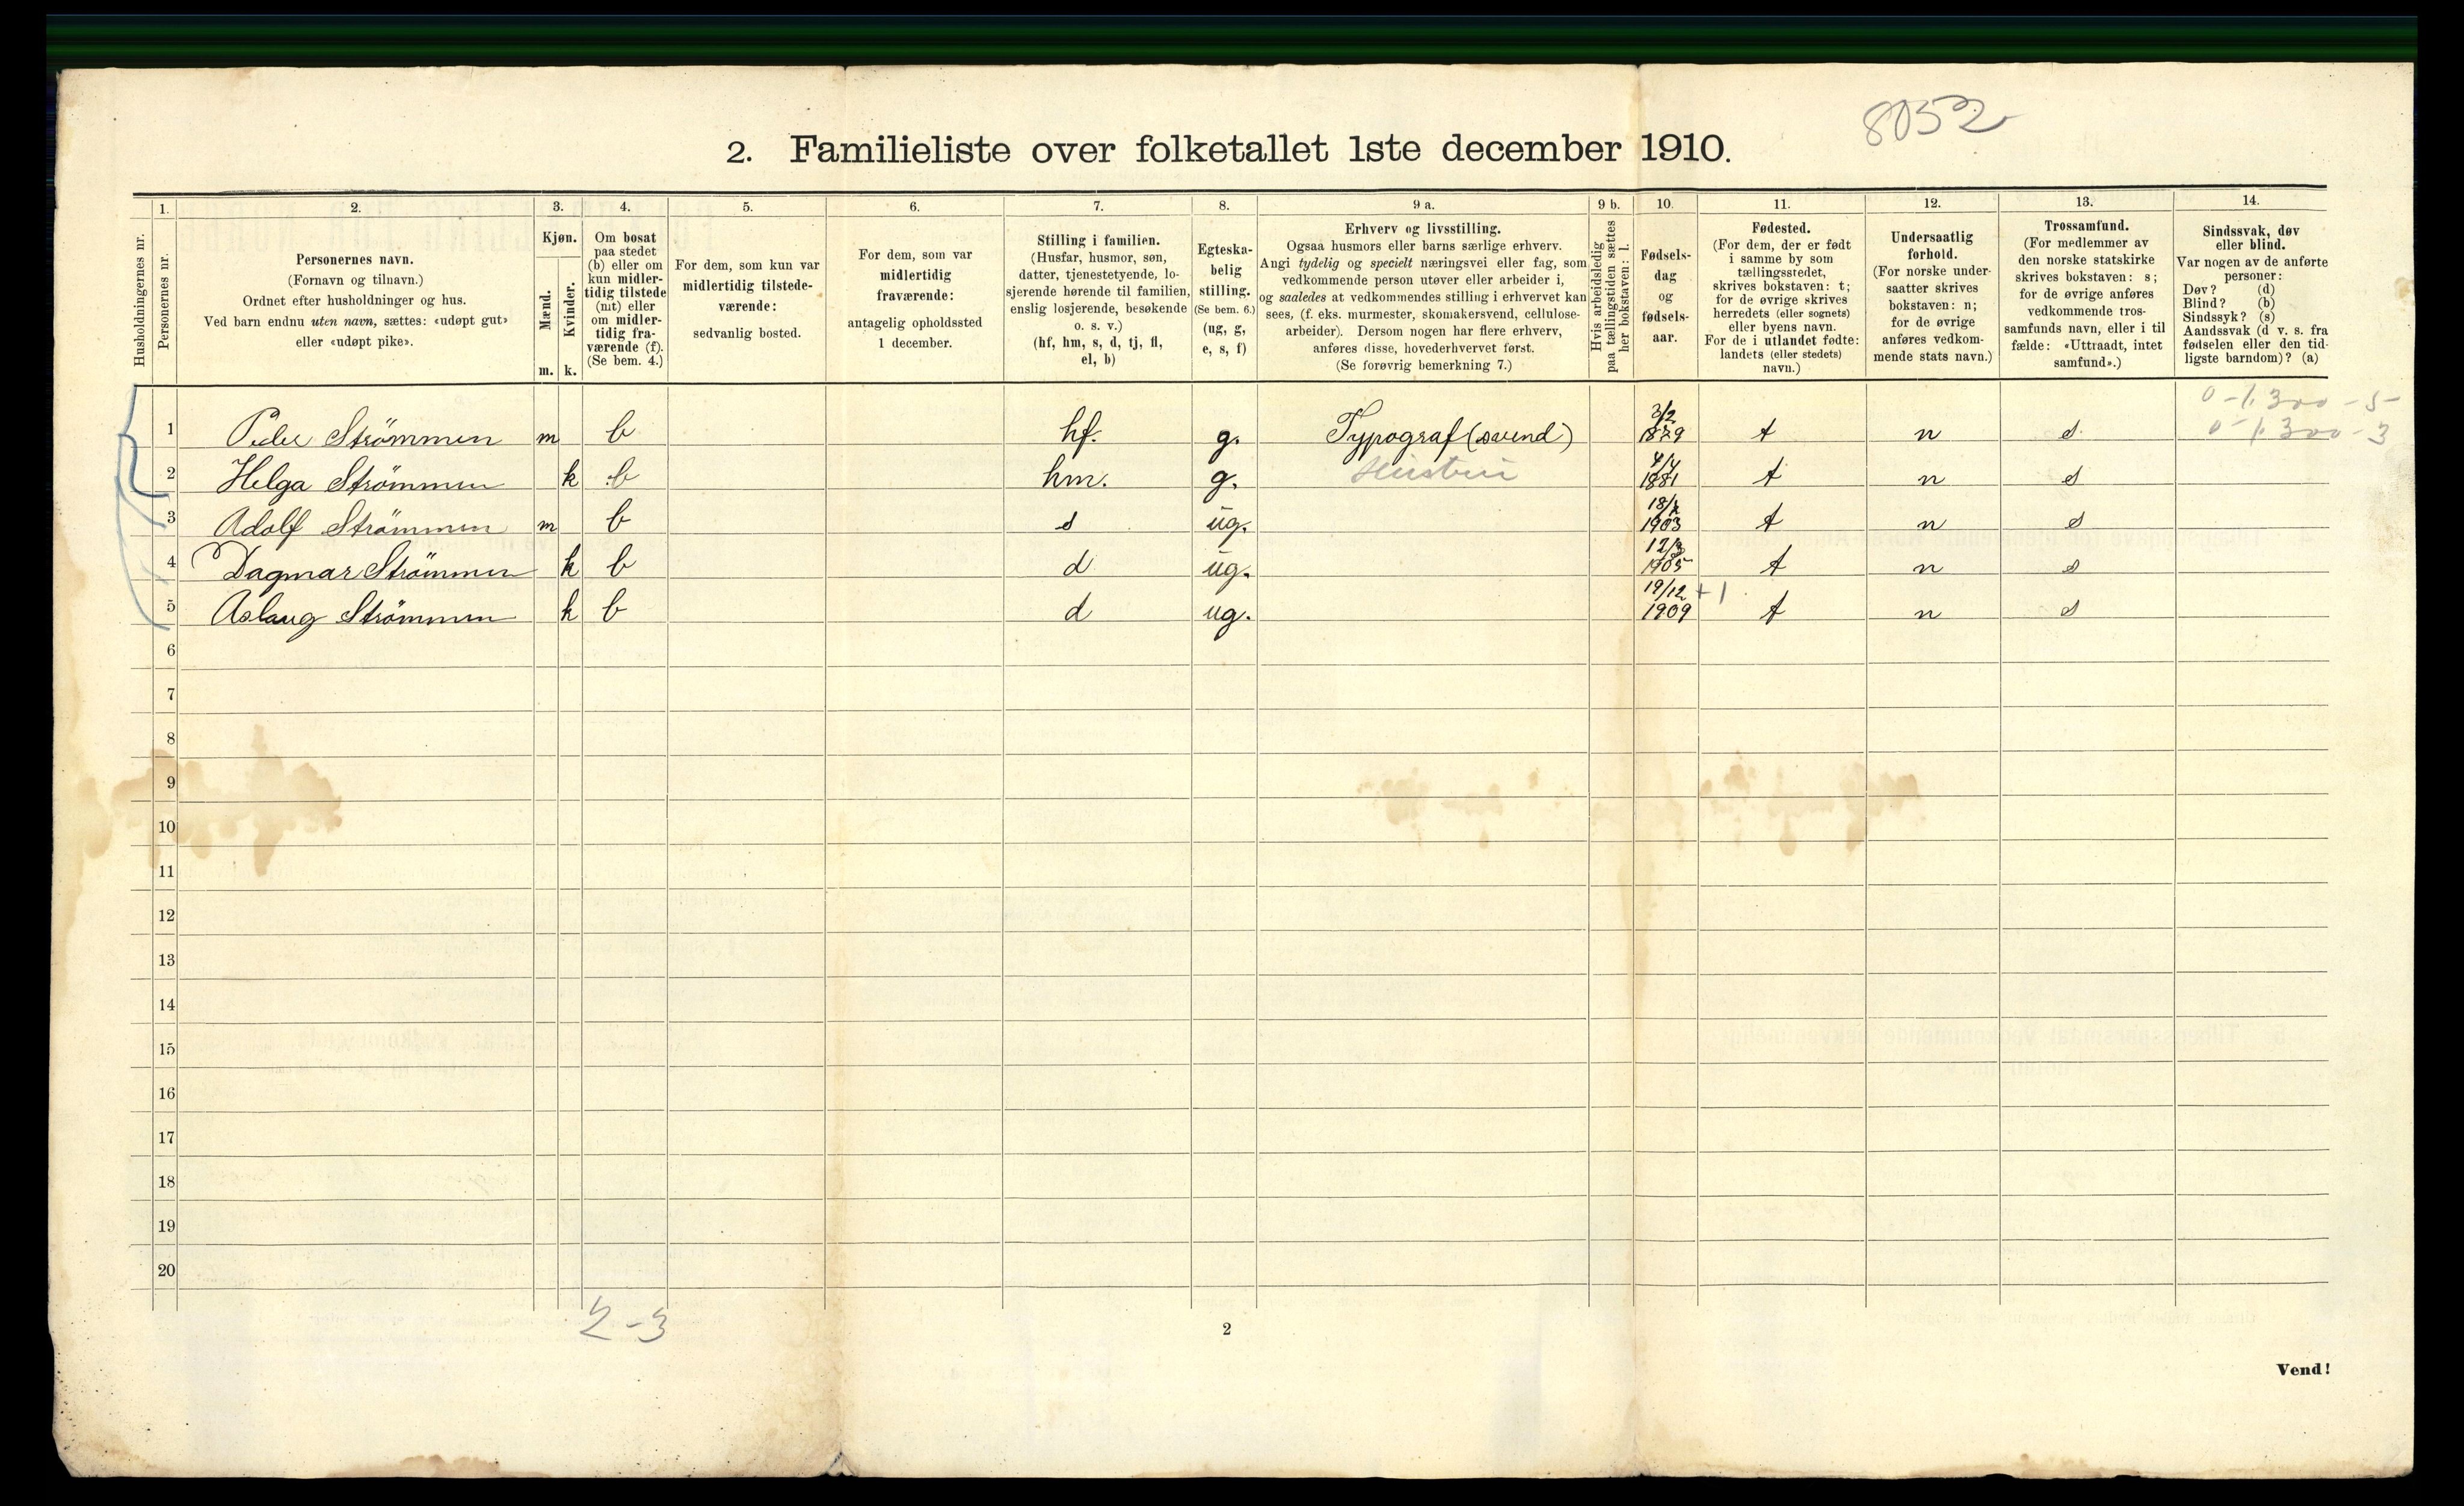 8052
2. Familieliste over folketallet 1ste december 1910.
Husholdningernes nr.
1.
Personernes nr.
2.
Personernes navn.
(Fornavn og tilnavn.)
Ordnet efter husholdninger og hus.
Ved barn endnu uten navn, sættes: «udøpt gut»
eller «udøpt pike».
3.
Kjøn.
Mænd.
Kvinder.
m. k.
4.
Om bosat
paa stedet
(b) eller om
kun midler-
tidig tilstede
(mt) eller
om midler-
tidig fra-
værende (f).
(Se bem. 4.)
5.
For dem, som kun var
midlertidig tilstede-
værende:
sedvanlig bosted.
6.
For dem, som var
midlertidig
fraværende:
antagelig opholdssted
1 december.
7.
Stilling i familien.
(Husfar, husmor, søn,
datter, tjenestetyende, lo-
sjerende hørende til familien,
enslig losjerende, besøkende
o. s. v.)
(hf, hm, s, d, tj, fl,
el, b)
8.
Egteska-
belig
stilling.
(Se bem. 6.)
(ug, g,
e, s, f)
9 a.
Erhverv og livsstilling.
Ogsaa husmors eller barns særlige erhverv.
Angi tydelig og specielt næringsvei eller fag, som
vedkommende person utøver eller arbeider i,
og saaledes at vedkommendes stilling i erhvervet kan
sees, (f. eks. murmester, skomakersvend, cellulose-
arbeider). Dersom nogen har flere erhverv,
anføres disse, hovederhvervet først.
(Se forøvrig bemerkning 7.)
9 b.
Hvis arbeidsledig
paa tællingstiden sættes
her bokstaven: l.
10.
Fødsels-
dag
og
fødsels-
aar.
11.
Fødested.
(For dem, der er født
i samme by som
tællingsstedet,
skrives bokstaven: t;
for de øvrige skrives
herredets (eller sognets)
eller byens navn.
For de i utlandet fødte:
landets (eller stedets)
navn.)
12.
Undersaatlig
forhold.
(For norske under-
saatter skrives
bokstaven: n;
for de øvrige
anføres vedkom-
mende stats navn.)
13.
Trossamfund.
(For medlemmer av
den norske statskirke
skrives bokstaven: s;
for de øvrige anføres
vedkommende tros-
samfunds navn, eller i til
fælde: «Uttraadt, intet
samfund».)
14.
Sindssvak, døv
eller blind.
Var nogen av de anførte
personer:
Døv? (d)
Blind? (b)
Sindssyk? (s)
Aandssvak (d v. s. fra
fødselen eller den tid-
ligste barndom)? (a)
0-1.300-5-
0-1.300-3
1 Peder Strömmen m b hf. g. Typograf (svend) 3/2 1879 t n s
2 Helga Strömmen k b hm. g. Hustru 4/4 1881 t n s
3 Adolf Strömmen m b s ug. 1903 t n s
4 Dagmar Strömmen k b d ug. 12/3 1905 t n s
5 Aslaug Strömmen k b d ug. 19/12 1909 +1 t n s
6
7
8
9
10
11
12
13
14
15
16
17
18
19
20
2-3
2
Vend!